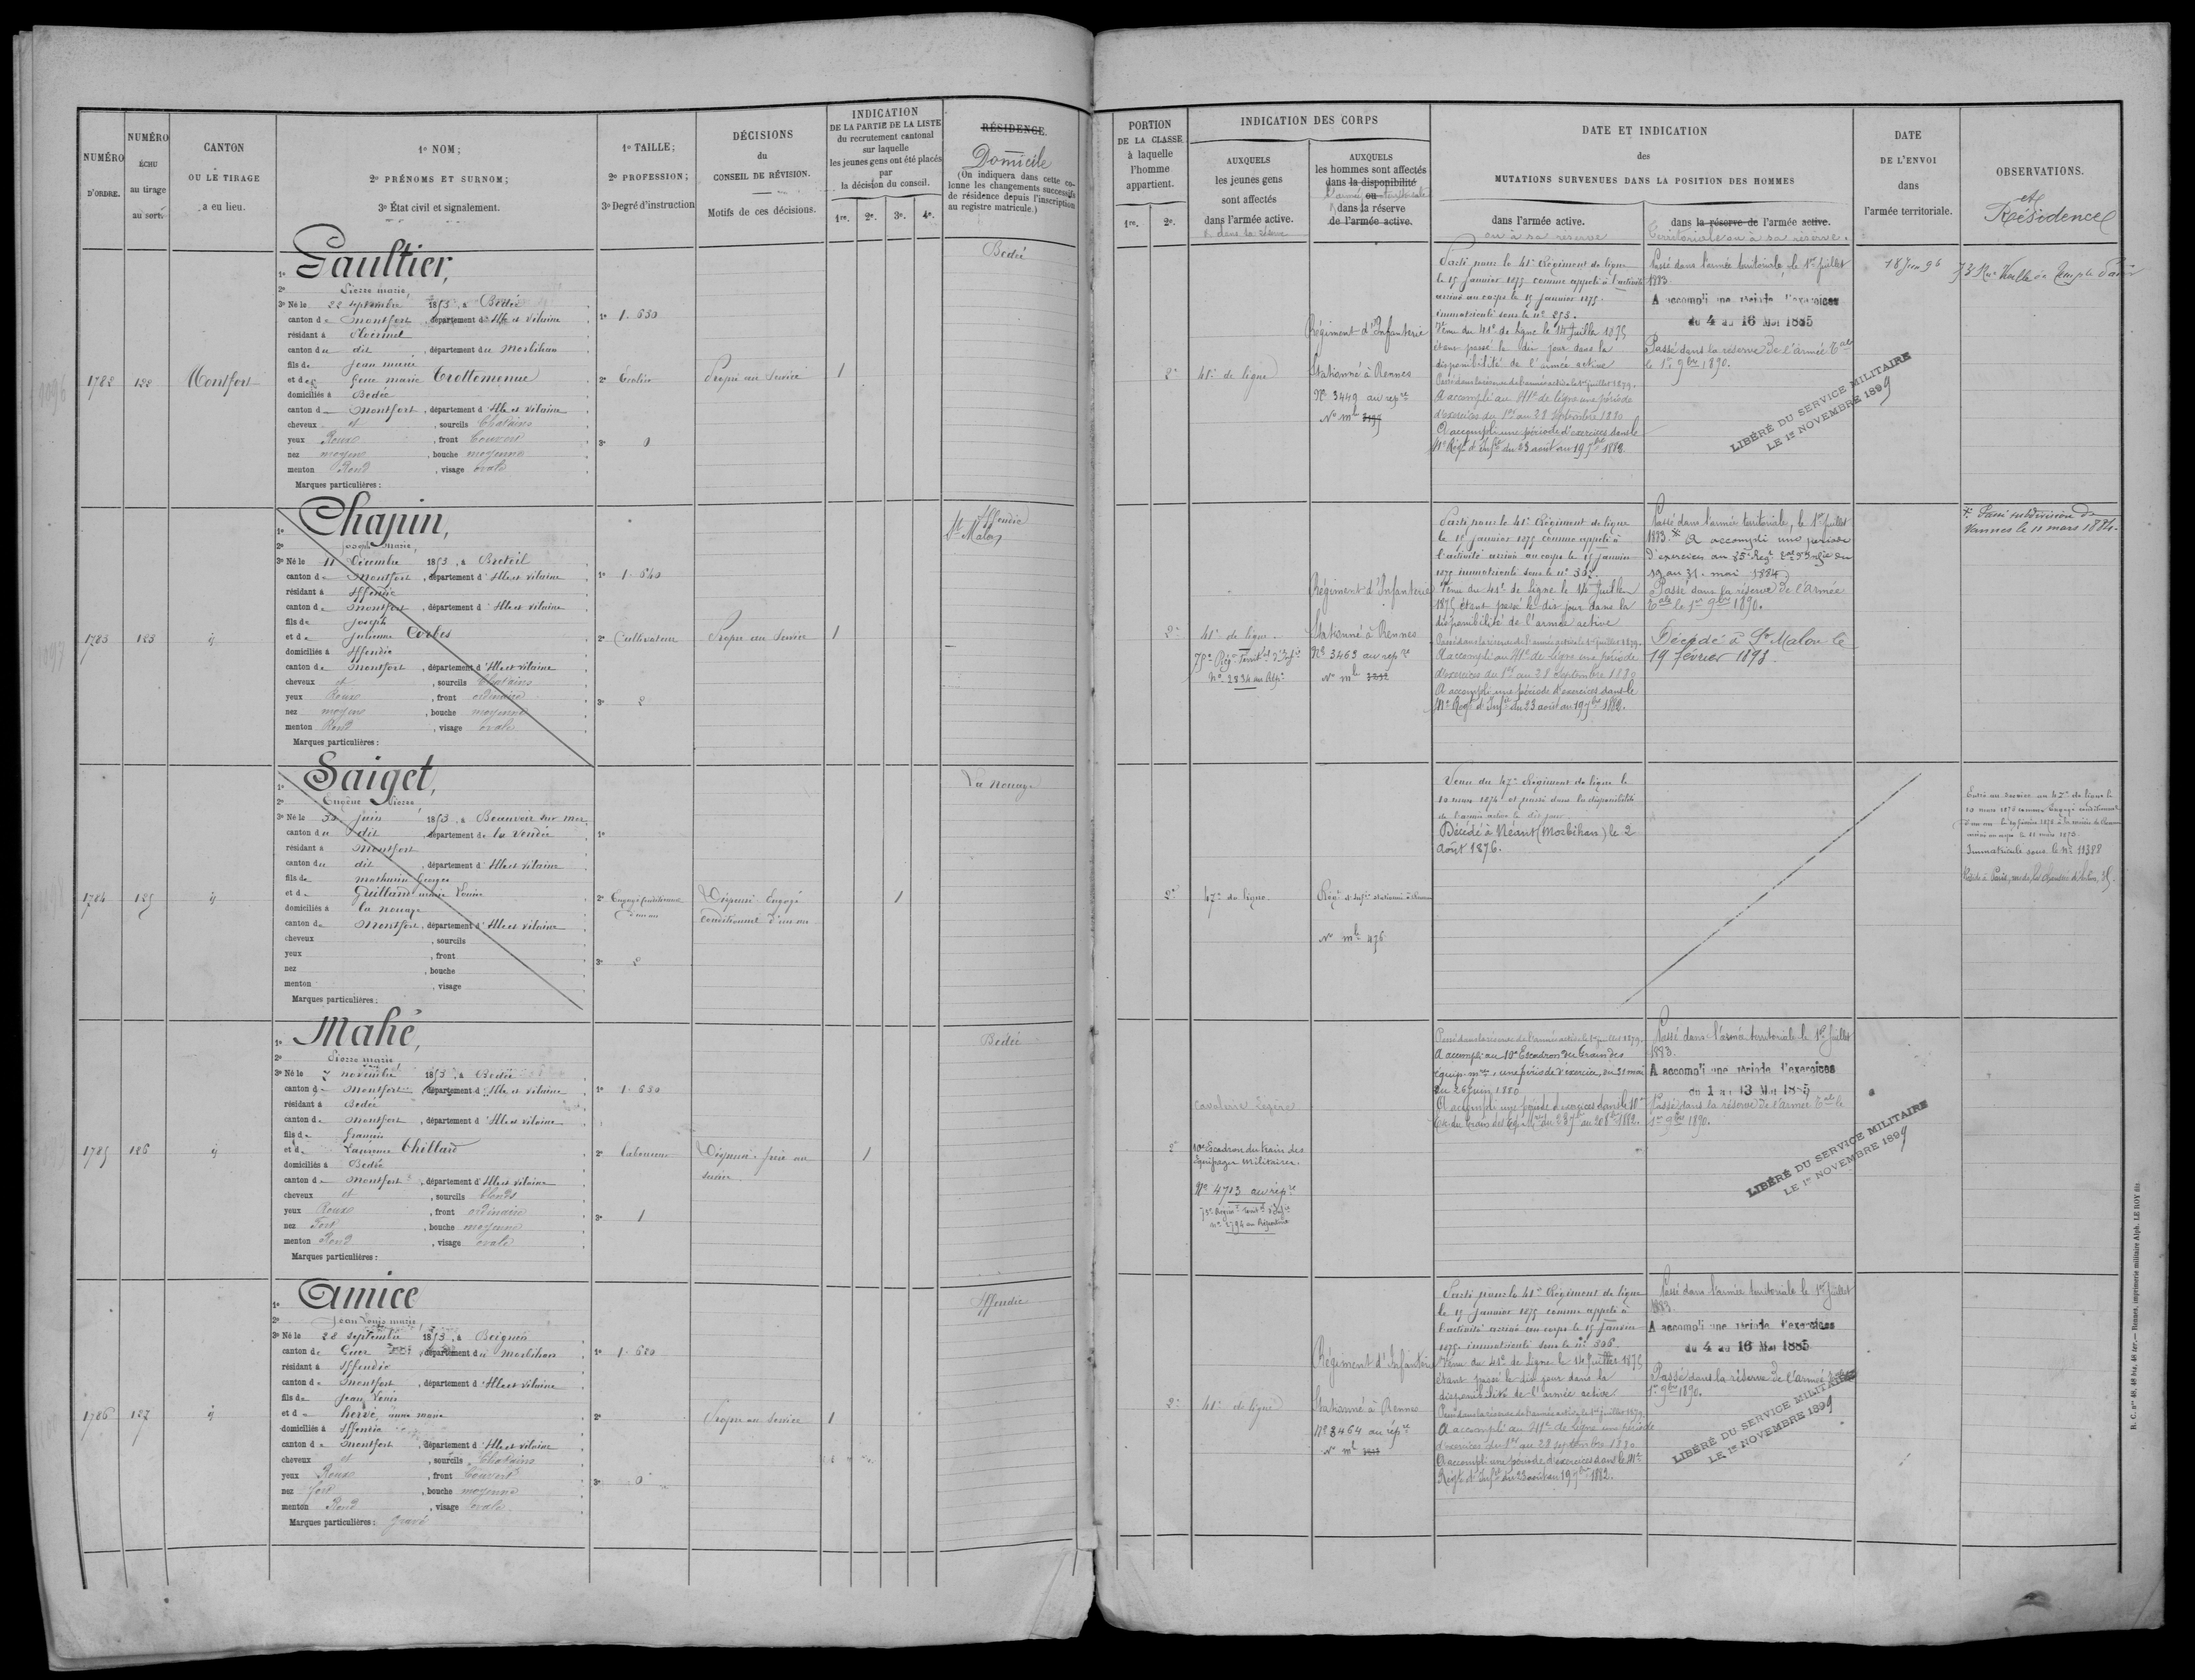 NUMÉRO
D'ORDRE.
NUMÉRO
ÉCHU
au tirage
au sort.
CANTON
OU LE TIRAGE
a eu lieu.
1º NOM;
2º PRÉNOMS ET SURNOM;
3º État civil et signalement.
1º TAILLE;
2º PROFESSION;
3º Degré d'instruction
DÉCISIONS
du
CONSEIL DE RÉVISION.
Motifs de ces décisions.
INDICATION
DE LA PARTIE DE LA LISTE
du recrutement cantonal
sur laquelle
les jeunes gens ont été placés
par
la décision du conseil.
1re. 2e. 3e. 4e.
RÉSIDENCE.
Domicile
(On indiquera dans cette co-
lonne les changements successifs
de résidence depuis l'inscription
au registre matricule.)
PORTION
DE LA CLASSE
à laquelle
l'homme
appartient.
1re. 2e.
INDICATION DES CORPS
AUXQUELS
les jeunes gens
sont affectés
dans l'armée active.
& dans la réserve
AUXQUELS
les hommes sont affectés
dans la disponibilité
l'armée ou territoriale
dans la réserve
de l'armée active.
DATE ET INDICATION
des
MUTATIONS SURVENUES DANS LA POSITION DES HOMMES
dans l'armée active.
ou à sa réserve
dans la réserve de l'armée active.
Territoriale ou à sa réserve.
DATE
DE L'ENVOI
dans
l'armée territoriale.
OBSERVATIONS.
et
Résidence
1782 122 Montfort
1º Gaultier,
2º Pierre marie
3º Né le 22 septembre 1853, à Bédée
canton de Montfort, département d'Ille et Vilaine
résidant à Ploermel
canton du dit, département du Morbihan
fils de Jean marie
et de Jeanne marie Crottemenue
domiciliés à Bedée
canton de Montfort, département d'Ille et Vilaine
cheveux et, sourcils Chatains
yeux Roux, front Couvert
nez moyen, bouche moyenne
menton Rond, visage ovale
Marques particulières:
1º 1.630
2º
3º 0
Propre au Service
1
Bédée
2e 41e de ligne
Régiment d'Infanterie
Stationné à Rennes
Nº 3449 au repre
Nº mle 3197
Parti pour le 41e Régiment de ligne
le 15 janvier 1875 comme appelé à l'activité
arrivé au corps le 15 janvier 1875.
immatriculé sous le nº 293.
Venu du 41e de ligne le 14 Juillet 1875
étant passé le dit jour dans la
disponibilité de l'armée active
Passé dans la réserve de l'armée active le 1er juillet 1879.
A accompli au 41e de ligne une période
d'exercices du 1er au 28 septembre 1880
A accompli une période d'exercices dans le
41e Régt d'Infrie du 23 août au 19 7bre 1882.
Passé dans l'armée territoriale, le 1er Juillet
1883.
A accompli une période d'exercices
du 4 au 16 Mai 1885
Passé dans la réserve de l'armée Tale
le 1er 9bre 1890.
LIBÉRÉ DU SERVICE MILITAIRE
LE 1er NOVEMBRE 1899
18 Juin 96
73 Rue Vieille du Temple Paris
1783 123 ij
1º Chapin,
2º Joseph marie,
3º Né le 11 Décembre 1853, à Breteil
canton de Montfort, département d'Ille et Vilaine
résidant à Iffendic
canton de Montfort, département d'Ille et Vilaine
fils de Joseph
et de Julienne Corbes
domiciliés à Iffendic
canton de Montfort, département d'Ille et Vilaine
cheveux et, sourcils Chatains
yeux Roux, front ordinaire
nez moyen, bouche moyenne
menton Rond, visage ovale
Marques particulières:
1º 1.640
2º Cultivateur
3º 2
Propre au Service
1
Iffendic
St Malon
2e 41e de ligne
75e Régt Territal d'Infie
nº 2834 au Répre
Régiment d'Infanterie
Stationné à Rennes
Nº 3463 au repre
Nº mle 3212
Parti pour le 41e Régiment de ligne
le 15 janvier 1875 comme appelé à
l'activité arrivé au corps le 15 janvier
1875 immatriculé sous le nº 302.
Venu du 41e de Ligne le 14 Juillet
1875 étant passé le dit jour dans la
disponibilité de l'armée active
Passé dans la réserve de l'armée active le 1er juillet 1879.
A accompli au 41e de Ligne une période
d'exercices du 1er au 28 Septembre 1880
A accompli une période d'exercices dans le
41e Régt d'Infie du 23 août au 19 7bre 1882.
Passé dans l'armée territoriale, le 1er Juillet
1883. * A accompli une période
d'exercices au 85e Régt d'Infie du
19 au 31 mai 1884
Passé dans la réserve de l'Armée
Tale le 1er 9bre 1890.
Décédé à St Malon le
19 février 1898.
* Passé subdivision de
Vannes le 11 mars 1884.
1784 125 ij
1º Saiget,
2º Eugène Pierre,
3º Né le 30 juin 1853, à Beauvoir sur mer
canton du dit, département de la Vendée
résidant à Montfort
canton du dit, département d'Ille et Vilaine
fils de mathurin Georges
et de Guillard marie Louise
domiciliés à la nouaye
canton de Montfort, département d'Ille et Vilaine
cheveux, sourcils
yeux, front
nez, bouche
menton, visage
Marques particulières:
1º
2º Engagé Conditionnel
d'un an
3º 2
Dispensé Engagé
conditionnel d'un an
1
La Nouaye
2e 47e de ligne
Régt d'Infie stationné à Rennes
Nº mle 476
Venu du 47e Régiment de ligne le
10 mars 1874 et passé dans la disponibilité
de l'armée active le dit jour
Décédé à Néant (Morbihan) le 2
Août 1876.
Entré au service au 47e de ligne le
Immatriculé sous le Nº 11388
1785 126 ij
1º Mahé,
2º Pierre marie
3º Né le 7 novembre 1853, à Bedée
canton de Montfort, département d'Ille et Vilaine
résidant à Bedée
canton de Montfort, département d'Ille et Vilaine
fils de François
et de Laurence Chillard
domiciliés à Bedée
canton de Montfort, département d'Ille et Vilaine
cheveux et, sourcils blonds
yeux Roux, front ordinaire
nez Fort, bouche moyenne
menton Rond, visage ovale
Marques particulières:
1º 1.630
2º Laboureur
3º 1
Dispensé frère au
service
1
Bedée
2e
Cavalerie Légère
10e Escadron du train des
Equipages Militaires.
Nº 4713 au repre
Passé dans la réserve de l'armée active le 1er juillet 1879.
A accompli au 10e Escadron du train des
équip. mres une période d'exercice, du 31 mai
au 26 juin 1880
A accompli une période d'exercices dans le 10e
Passé dans l'armée territoriale le 1er Juillet
1883.
A accompli une période d'exercices
du 1 au 13 Mai 1885
Passé dans la réserve de l'armée Tale le
1er 9bre 1890.
LIBÉRÉ DU SERVICE MILITAIRE
LE 1er NOVEMBRE 1899
1786 127 ij
1º Amice
2º Jean Louis marie,
3º Né le 28 septembre 1853, à Beignon
canton de Guer, département du Morbihan
résidant à Iffendic
canton de Montfort, département d'Ille et Vilaine
fils de Jean Louis
et de hervé, anne marie
domiciliés à Iffendic
canton de Montfort, département d'Ille et Vilaine
cheveux et, sourcils Chatains
yeux Roux, front Couvert
nez fort, bouche moyenne
menton Rond, visage ovale
Marques particulières: gravé
1º 1.680
2º
3º 0
Propre au Service
1
Iffendic
2e 41e de ligne
Régiment d'Infanterie
Stationné à Rennes
Nº 3464 au répre
Nº mle 3213
Parti pour le 41e Régiment de ligne
le 15 janvier 1875 comme appelé à
l'activité arrivé au corps le 15 janvier
1875 immatriculé sous le nº 306.
Venu du 41e de Ligne le 14 Juillet 1875
étant passé le dit jour dans la
disponibilité de l'armée active
Passé dans la réserve de l'armée active le 1er juillet 1879
A accompli au 41e de Ligne une période
d'exercices du 1er au 28 septembre 1880
A accompli une période d'exercices dans le 41e
Régt d'Infie du 23 août au 19 7bre 1882.
Passé dans l'armée territoriale le 1er Juillet
1883.
A accompli une période d'exercices
du 4 au 16 Mai 1885
Passé dans la réserve de l'armée
1er 9bre 1890.
LIBÉRÉ DU SERVICE MILITAIRE
LE 1er NOVEMBRE 1899
R. C. nos 48, 48 bis, 48 ter.— Rennes, imprimerie militaire Alph. LE ROY fils